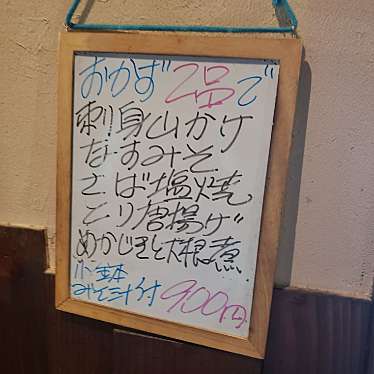 おかず2品で
刺身山かけ
なすみそ
さば塩焼
とり唐揚げ
めかじきと大根煮
小鉢
みそ汁付 900円